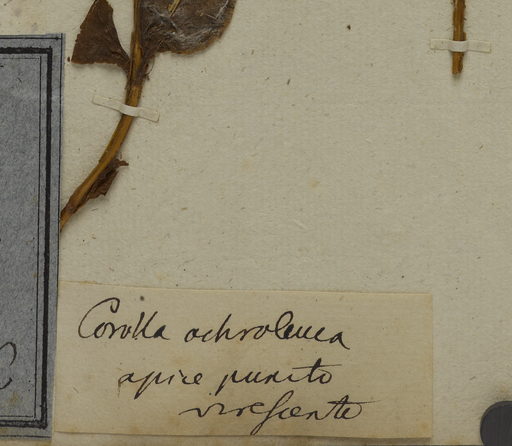 Corolla ochroleuca
apice puncto
virescente